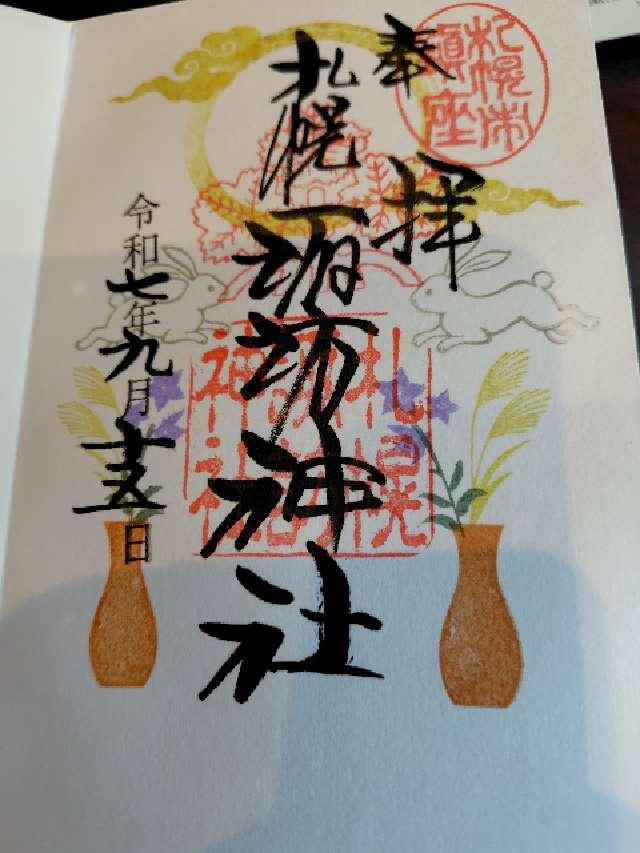 奉拝
札幌市鎮座
札幌諏訪神社
札幌
諏訪
神社
令和七年九月十五日